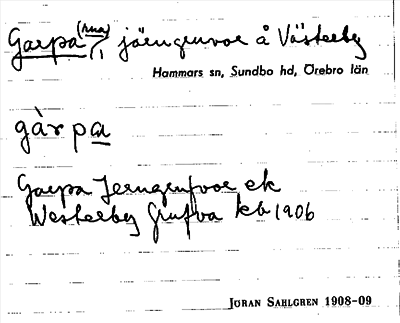 Garpa (rna), järngruvor å Västerby
Hammars sn, Sundbo hd, Örebro län
gàrpa
Garpa Jerngrufvor ek
Westerby Grufva kb 1906
JÖRAN SAHLGREN 1908-09